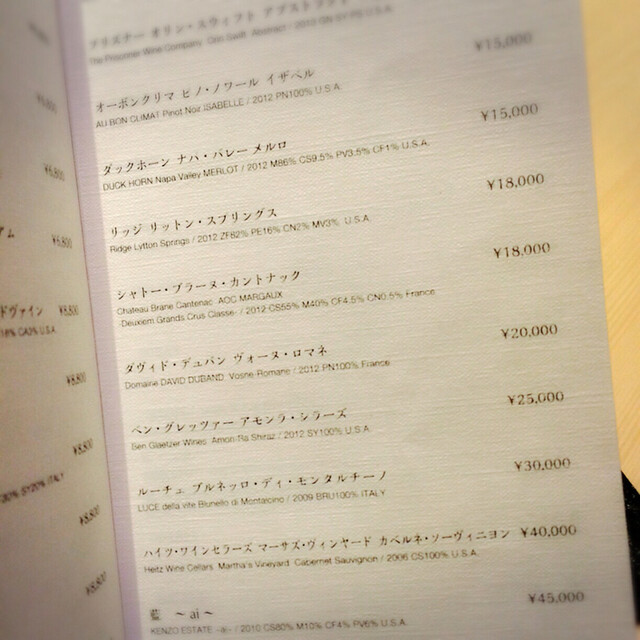 プリズナー オリン・スウィフト アブストラクト
The Prisoner Wine Company Orin Swift Abstract / 2013 GN SY PS U.S.A.
¥15,000
オーボンクリマ ピノ・ノワール イザベル
AU BON CLIMAT Pinot Noir ISABELLE / 2012 PN100% U.S.A.
¥15,000
ダックホーン ナパ・バレー メルロ
DUCK HORN Napa Valley MERLOT / 2012 M86% CS9.5% PV3.5% CF1% U.S.A.
¥18,000
リッジ リットン・スプリングス
Ridge Lytton Springs / 2012 ZF82% PE16% CN2% MV3% U.S.A.
¥18,000
シャトー・ブラーヌ・カントナック
Chateau Brane Cantenac AOC MARGAUX
-Deuxiem Grands Crus Classe- / 2012 CS55% M40% CF4.5% CN0.5% France
¥20,000
ダヴィド・デュバン ヴォーヌ・ロマネ
Domaine DAVID DUBAND Vosne-Romane / 2012 PN100% France
¥25,000
ベン・グレッツァー アモンラ・シラーズ
Ben Glaetzer Wines Amon-Ra Shiraz / 2012 SY100% U.S.A
¥30,000
ルーチェ ブルネッロ・ディ・モンタルチーノ
LUCE della vite Blunello di Montarcino / 2009 BRU100% ITALY
ハイツ・ワインセラーズ マーサズ・ヴィンヤード カベルネ・ソーヴィニヨン ¥40,000
Heitz Wine Cellars Martha's Vineyard Cabernet Sauvignon / 2006 CS100% U.S.A.
藍 ～ ai ～
¥45,000
KENZO ESTATE -ai- / 2010 CS80% M10% CF4% PV6% U.S.A.
¥6,800
¥6,800
アム
ドヴァイン ¥8,800
16% CA3% U.S.A
¥8,800
¥8,800
SY20% ITALY
¥8,800
¥8,800